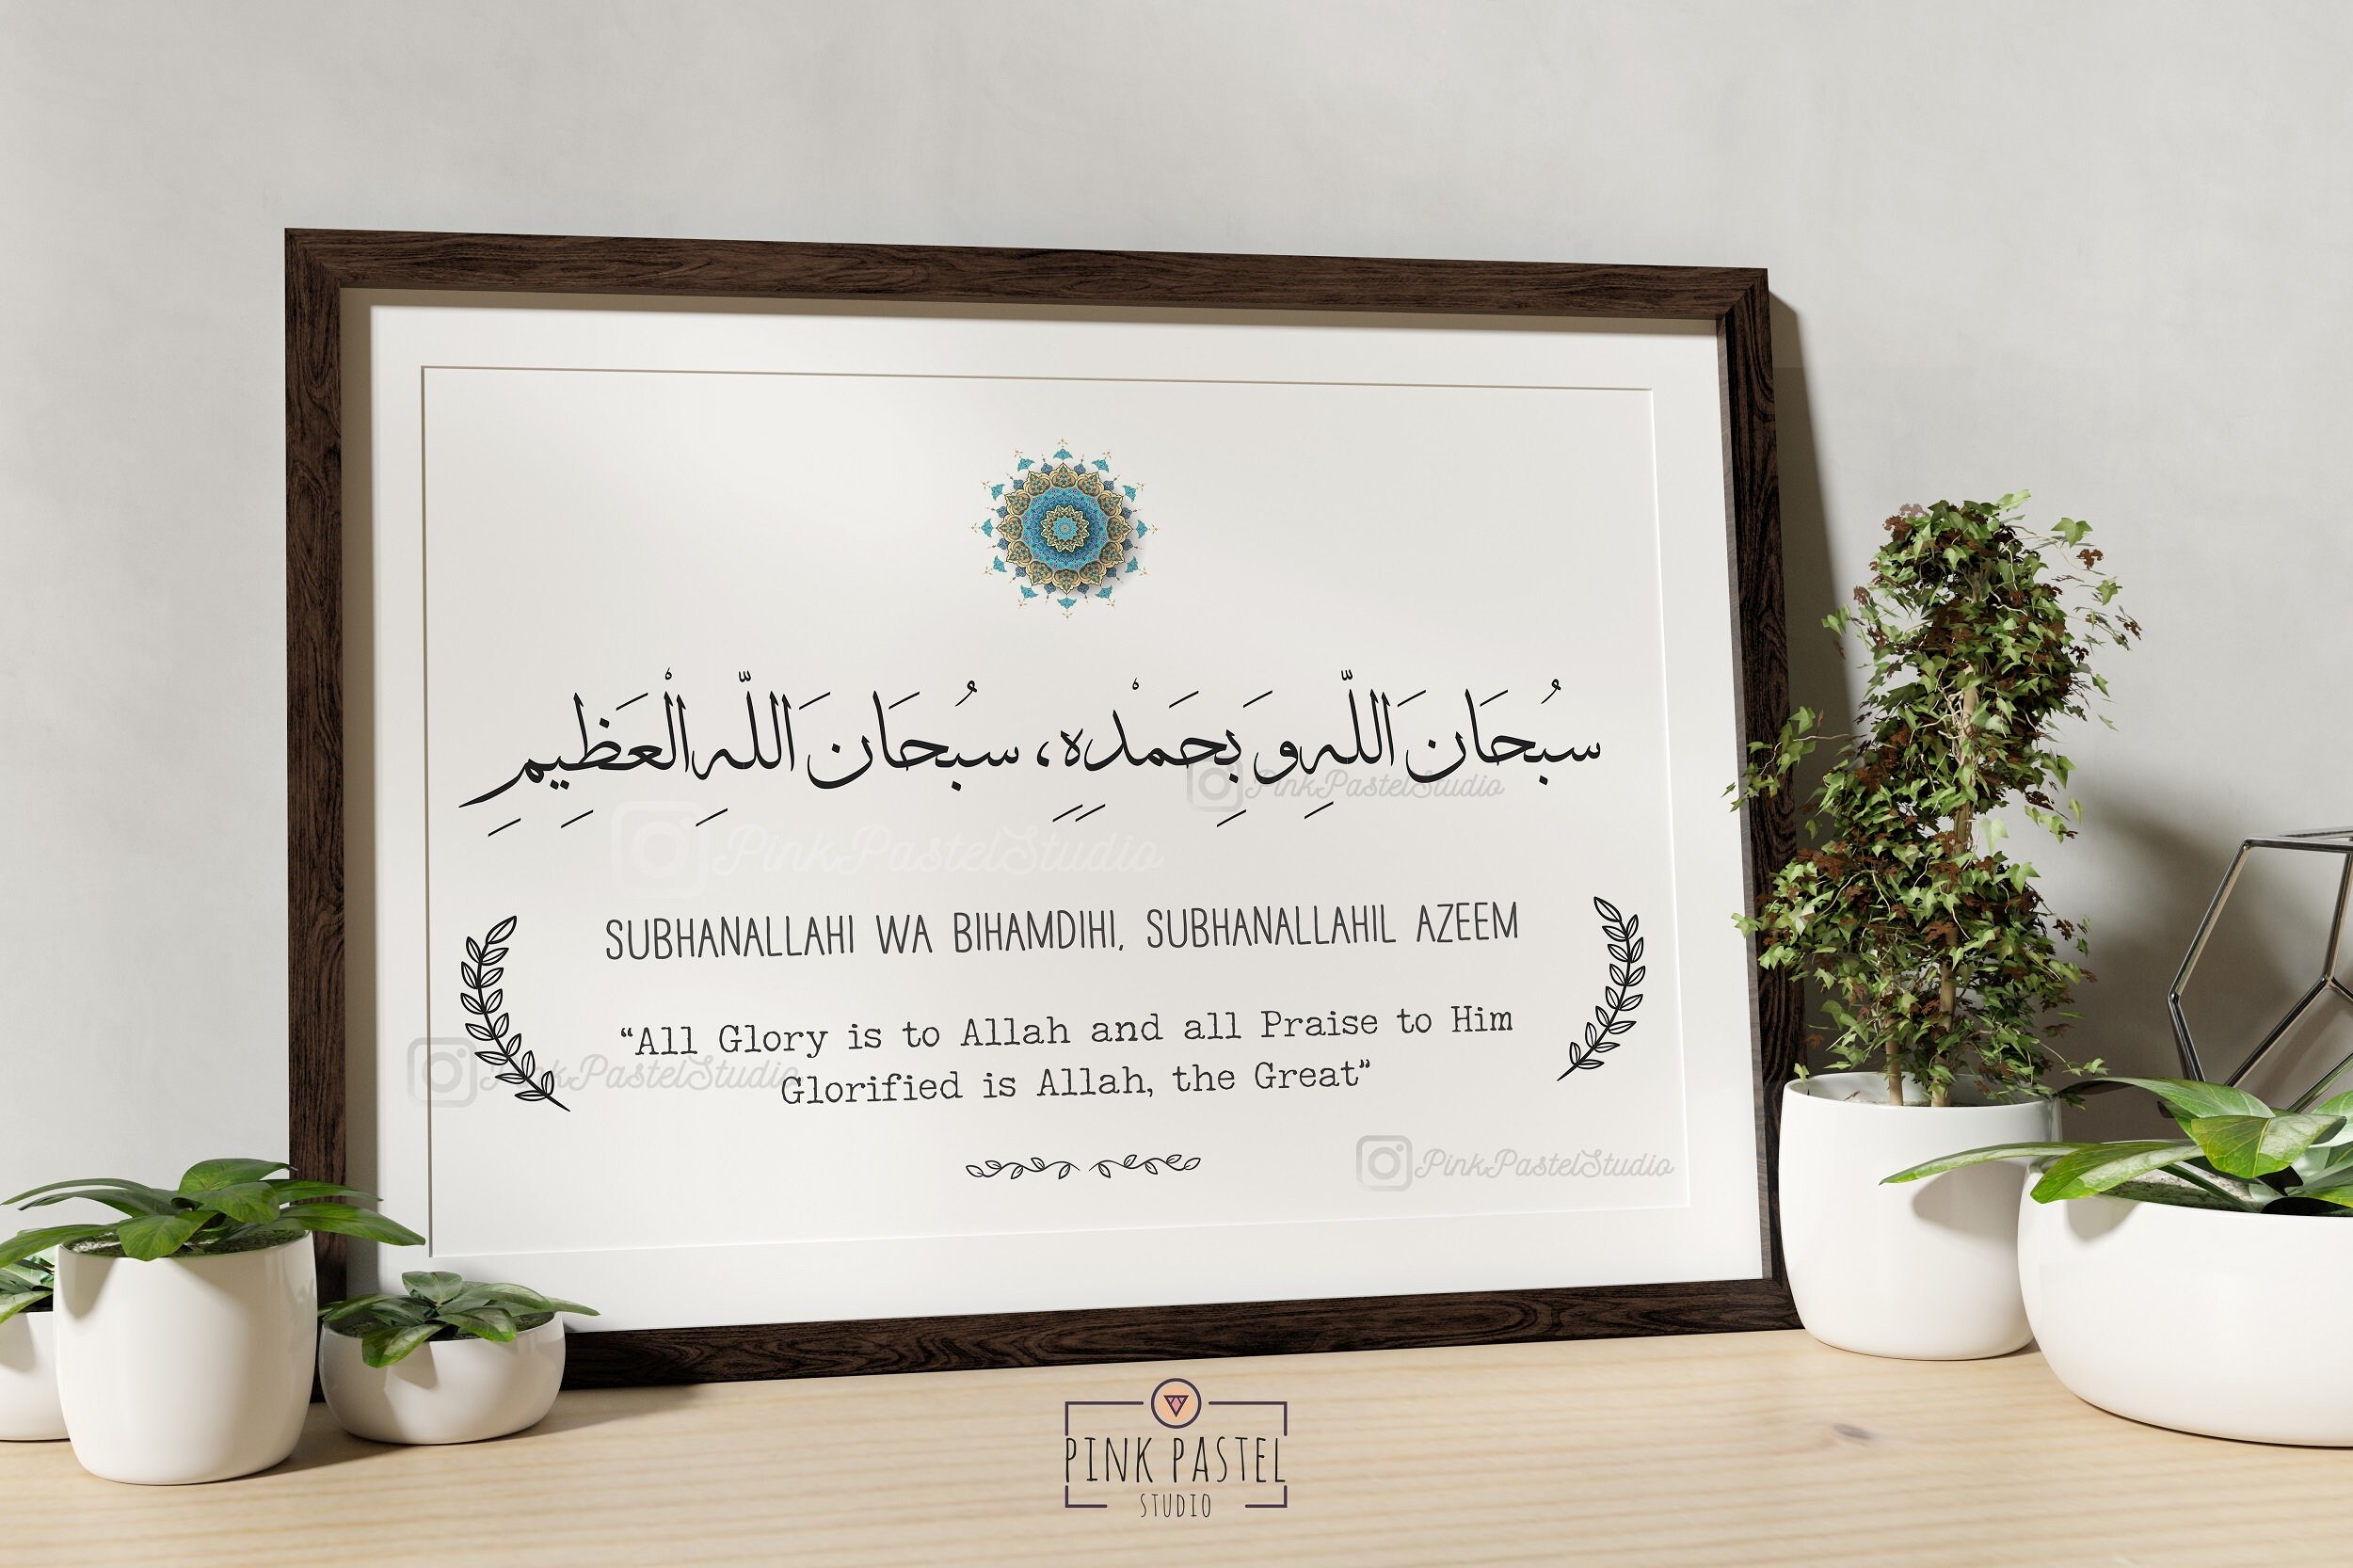 سُبحَان َاللّهِ و َبِحَمْدِهِِ، سبُحَان َاللّهِ الْعَظِيِمِ
PinkPastelStudio
PinkPastelStudio
SUBHANALLAHI WA BIHAMDIHI, SUBHANALLAHIL AZEEM
“All Glory is to Allah and all Praise to Him
PinkPastelStudio
Glorified is Allah, the Great”
PinkPastelStudio
PINK PASTEL
STUDIO